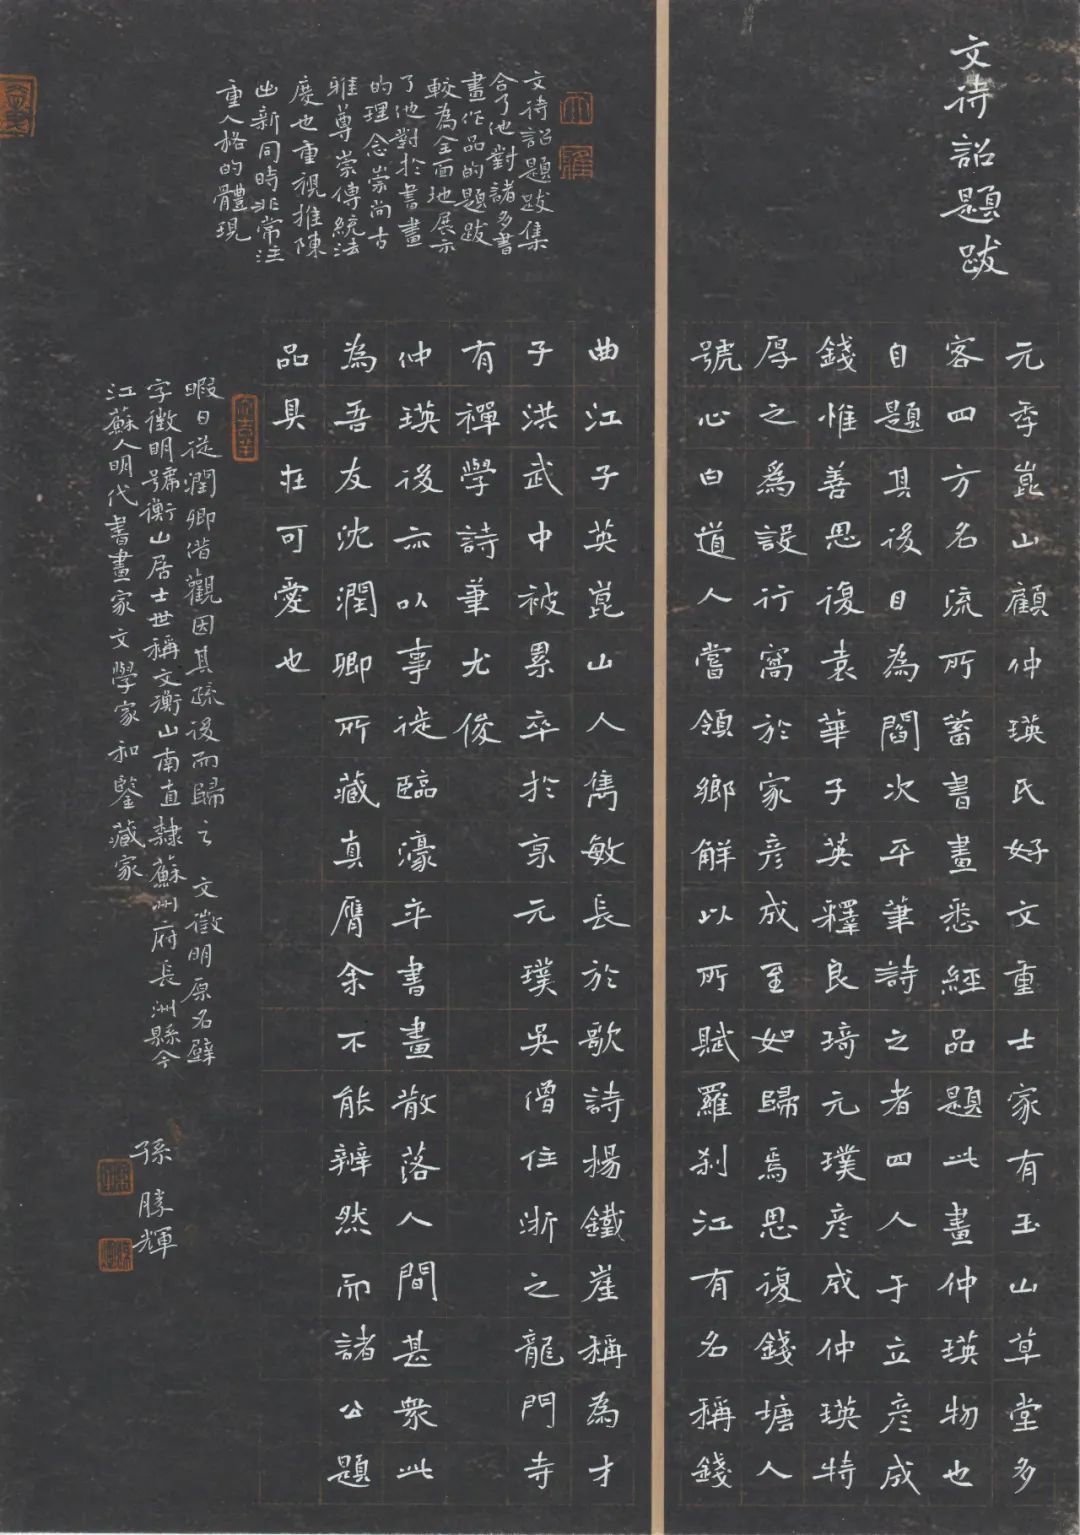 文待詔題跋
元季崑山顧仲瑛氏好文重士家有玉山草堂多
客四方名流所蓄書畫悉經品題此畫仲瑛物也
自題其後目為閻次平筆詩之者四人于立彥成
錢惟善思復袁華子英釋良琦元璞彥成仲瑛特
厚之爲設行窩於家彥成至如歸焉思復錢塘人
號心白道人嘗領鄉解以所賦羅刹江有名稱錢
曲江子英崑山人雋敏長於歌詩揚鐵崖稱為才
子洪武中被累卒於京元璞吳僧住浙之龍門寺
有禪學詩筆尤俊
仲瑛後亦以事徙臨濠卒書畫散落人間甚眾此
為吾友沈潤卿所藏真贗余不能辨然而諸公題
品具在可愛也
文待詔題跋集
合了他對諸多書
畫作品的題跋
較為全面地展示
了他對於書畫
的理念崇尚古
雅尊崇傳統法
度也重視推陳
出新同時非常注
重人格的體現
暇日從潤卿借觀因其疏後而歸之 文徵明原名壁
字徵明號衡山居士世稱文衡山南直隸蘇州府長洲縣今
江蘇人明代書畫家文學家和鑒藏家
孫勝輝